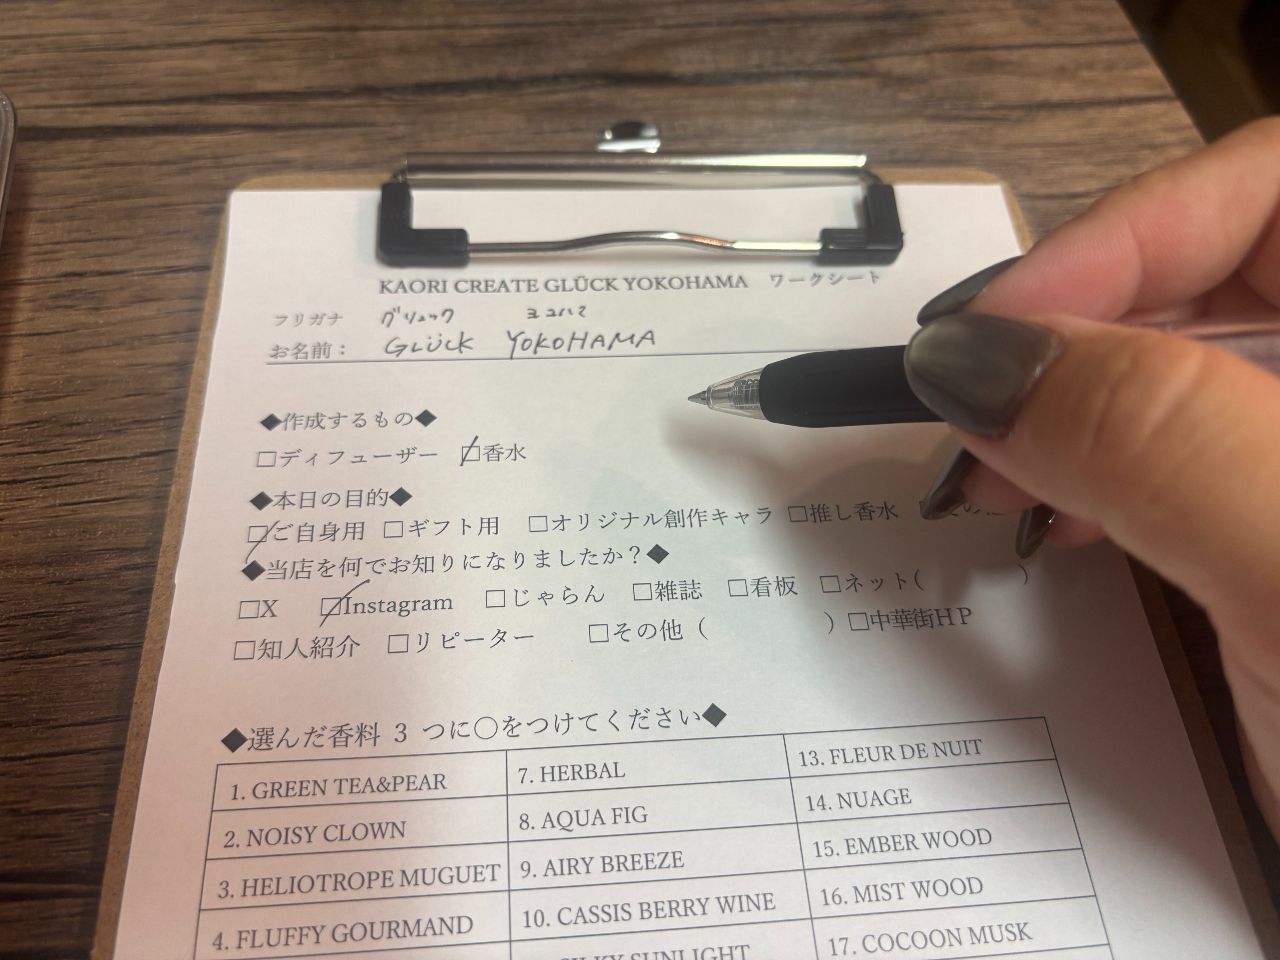 KAORI CREATE GLÜCK YOKOHAMA ワークシート
フリガナ グリュック ヨコハマ
お名前： GLÜCK YOKOHAMA
◆作成するもの◆
□ディフューザー ☑香水
◆本日の目的◆
☑ご自身用 □ギフト用 □オリジナル創作キャラ □推し香水
◆当店を何でお知りになりましたか？◆
□X ☑Instagram □じゃらん □雑誌 □看板 □ネット( )
□知人紹介 □リピーター □その他（ ）□中華街HP
◆選んだ香料 3 つに〇をつけてください◆
1. GREEN TEA&PEAR 7. HERBAL 13. FLEUR DE NUIT
2. NOISY CLOWN 8. AQUA FIG 14. NUAGE
3. HELIOTROPE MUGUET 9. AIRY BREEZE 15. EMBER WOOD
4. FLUFFY GOURMAND 10. CASSIS BERRY WINE 16. MIST WOOD
SUNLIGHT 17. COCOON MUSK